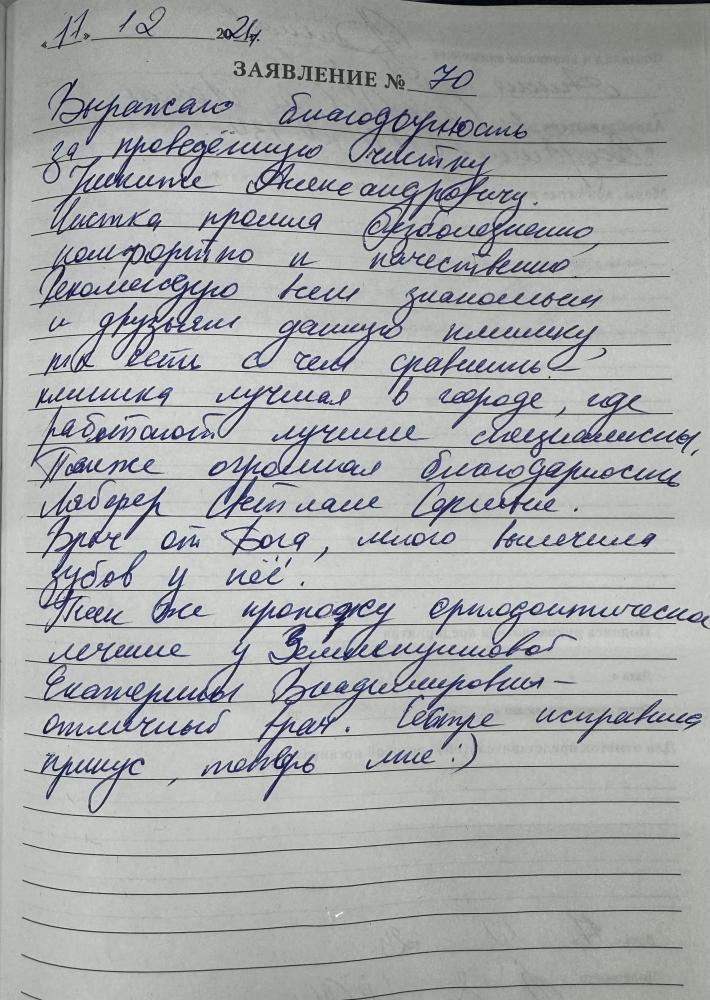 «11» 12 2024г.
ЗАЯВЛЕНИЕ № 70
Выражаю благодарность
за проведённую чистку
Никите Александровичу.
Чистка прошла безболезненно,
комфортно и качественно.
Рекомендую всем знакомым
и друзьям данную клинику,
тк есть с чем сравнить –
клиника лучшая в городе, где
работают лучшие специалисты.
Также огромная благодарность
Лаберер Светлане Сергеевне.
Врач от Бога, много вылечила
зубов у неё.
Так же прохожу ортодонтическое
лечение у
Екатерины Владимировны –
отличный врач. Сестре исправила
прикус, теперь мне :)